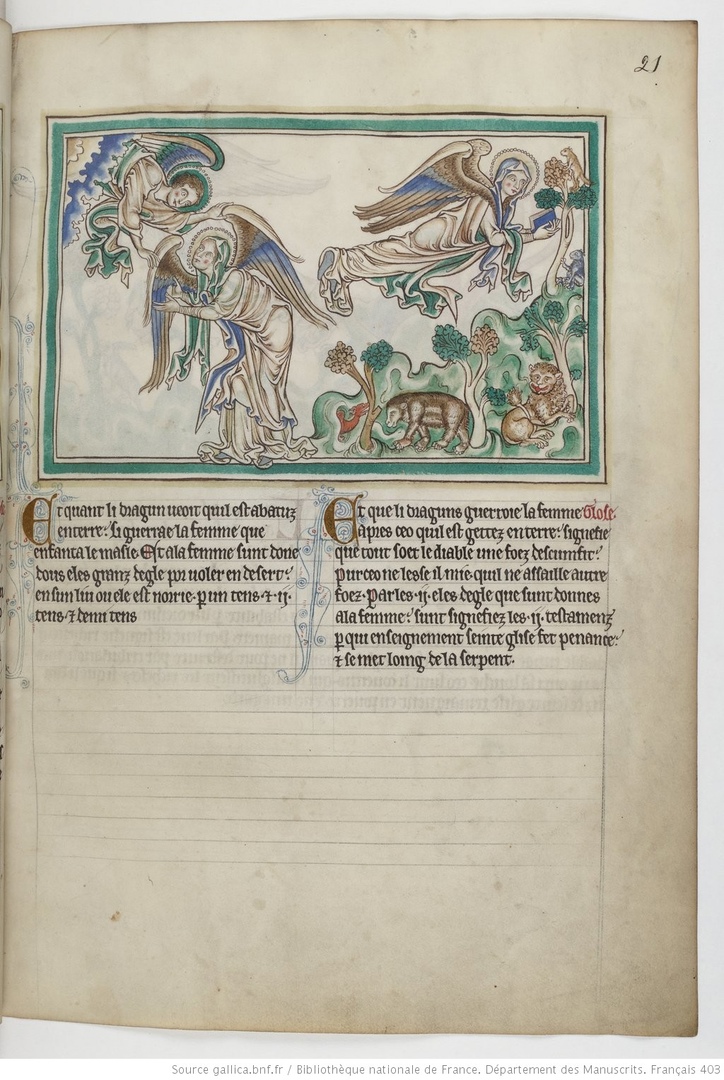 21
Et quant li dragun ueoit quil est abatuz
en terre: si guerrae la femme que
enfanta le masle. Et a la femme sunt done
dous eles granz degle por uoler en desert:
en sun liu ou ele est norrie. p un tens. ⁊ .ij.
tens. ⁊ demi tens
Et que li draguns guerroie la femme Glose.
apres ceo quil est gettez en terre: signefie
que tout soet le diable une foez descumfit:
pur ceo ne lesse il mie. quil ne assaille autre
foez. Par les .ij. eles degle que sunt donnes
a la femme: sunt signefiez les .ij. testamenz
p qui enseignement seinte glise fet penance:
⁊ se met loing de la serpent.
Source gallica.bnf.fr / Bibliothèque nationale de France. Département des Manuscrits. Français 403